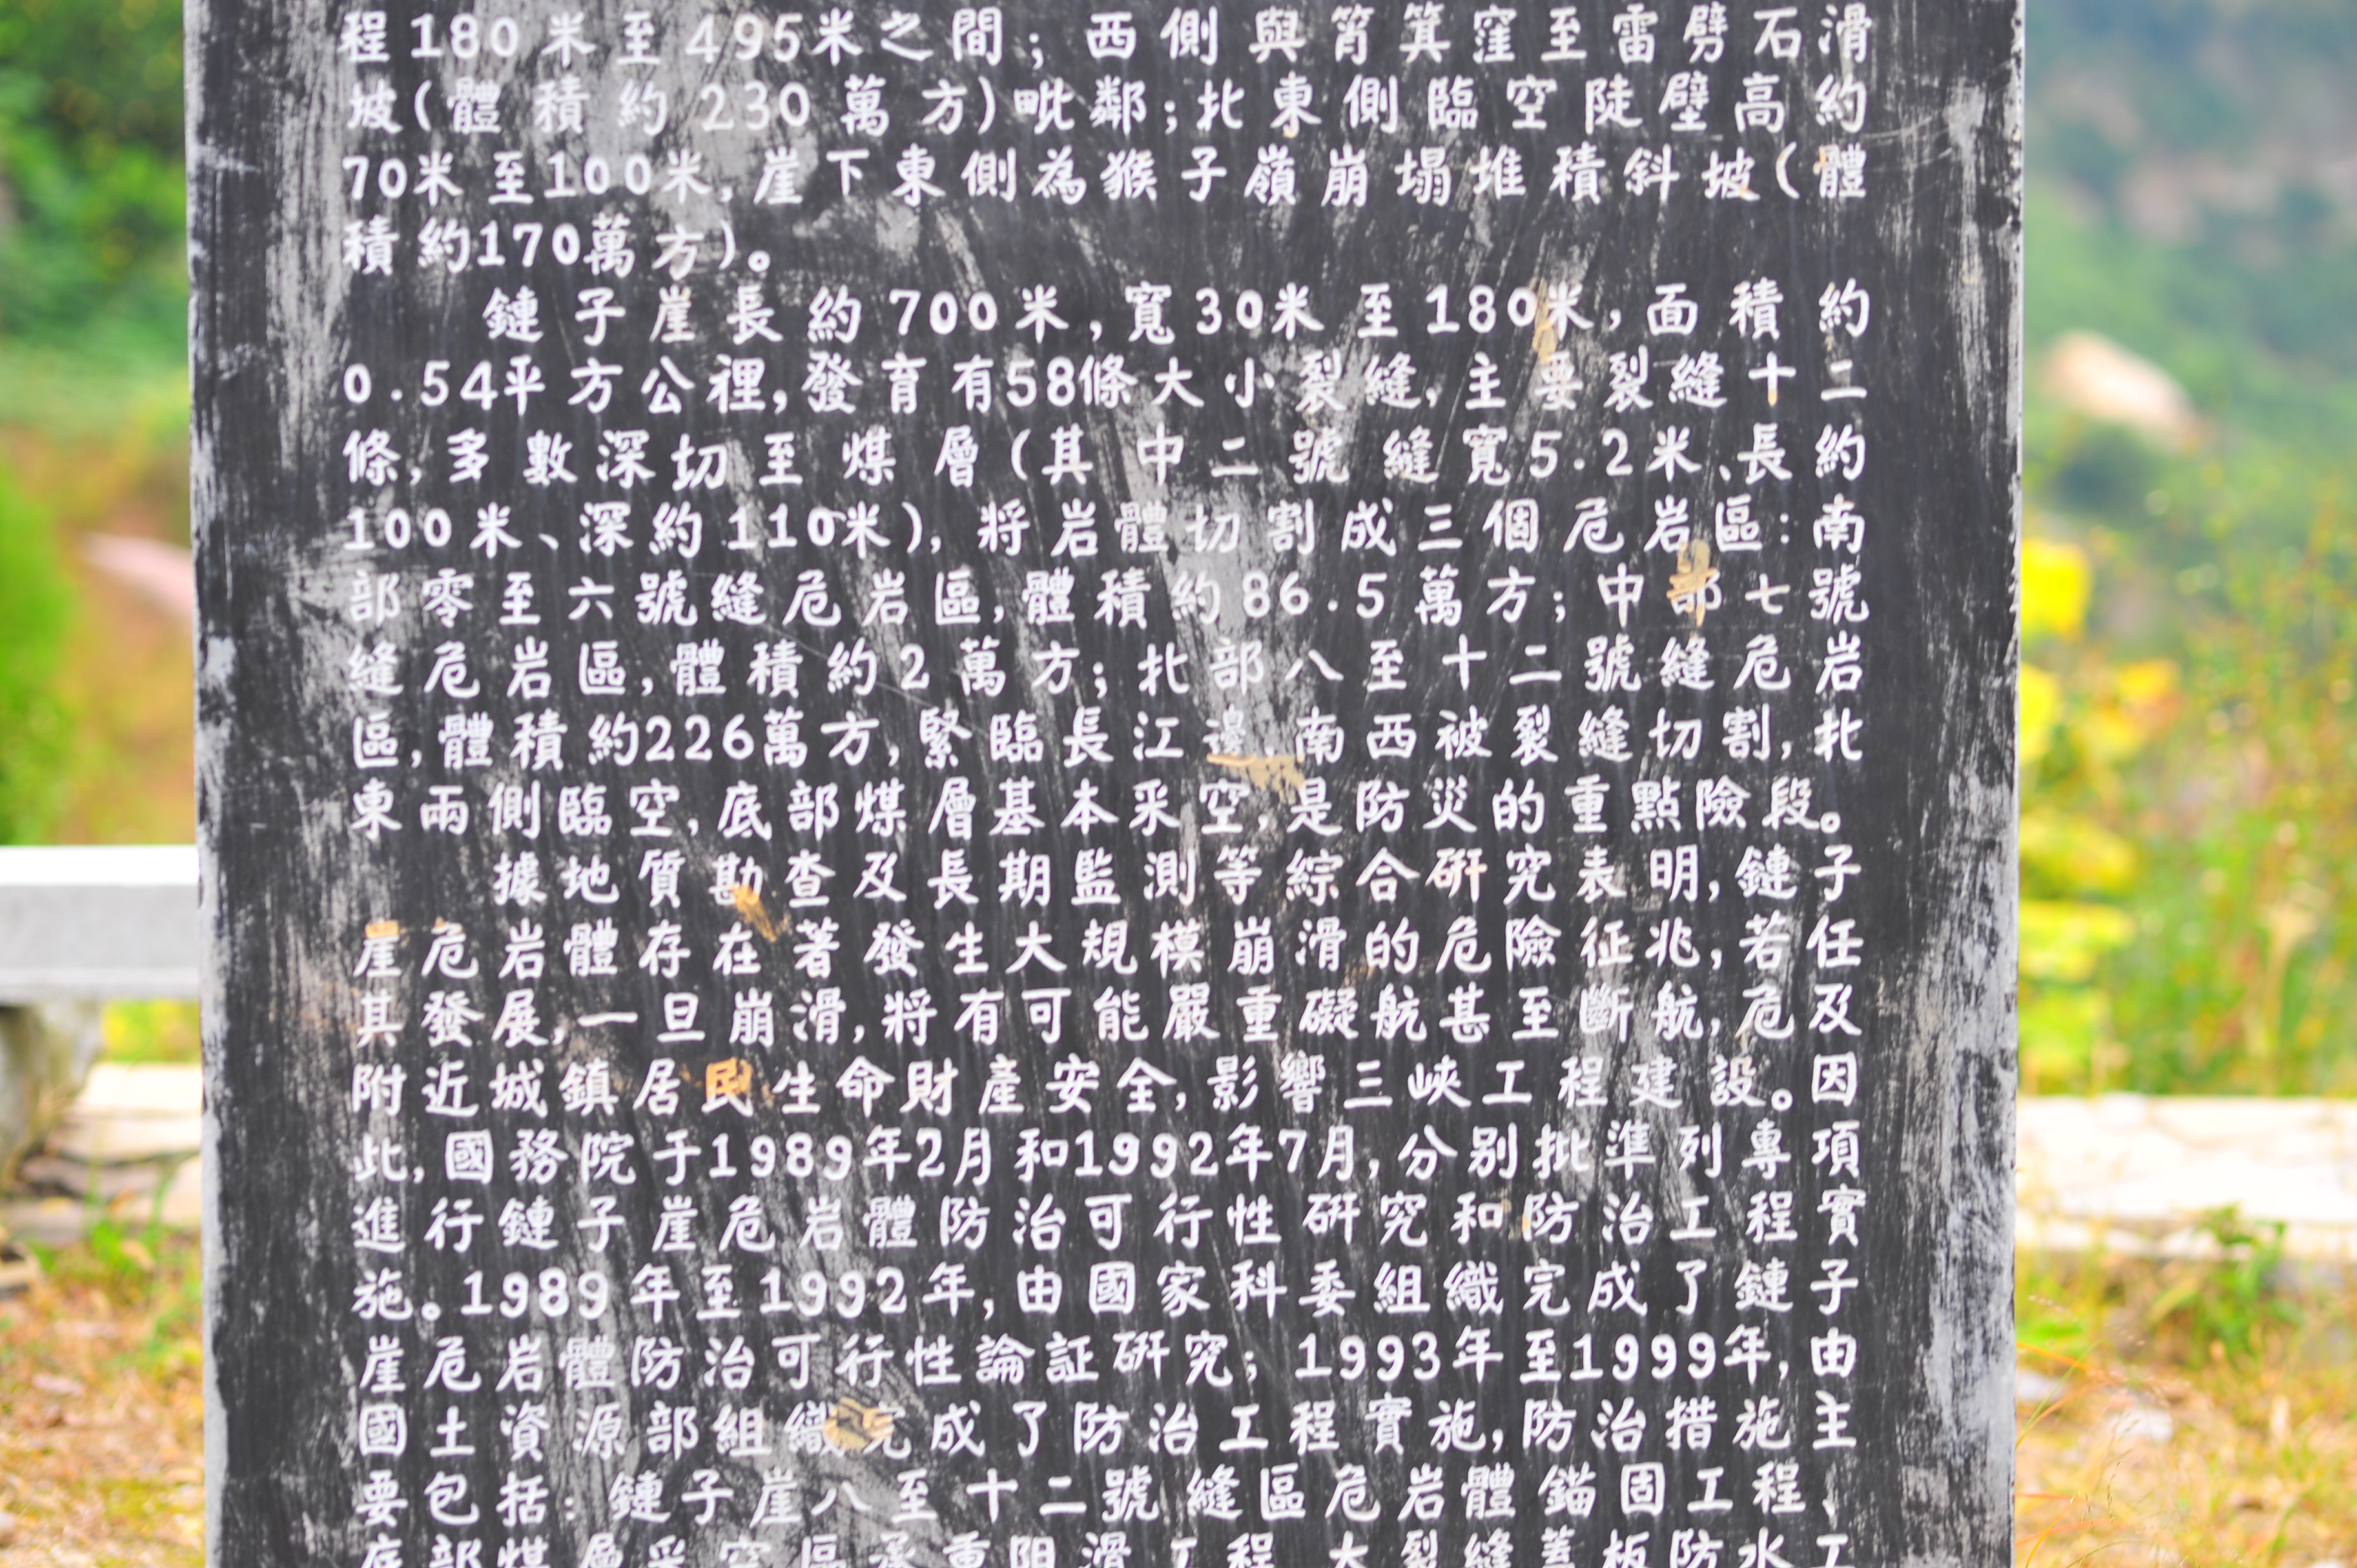 程180米至495米之間；西側與筲箕窪至雷劈石滑
坡(體積約230萬方)毗鄰；北東側臨空陡壁高約
70米至100米，崖下東側為猴子嶺崩塌堆積斜坡(體
積約170萬方)。
鏈子崖長約700米，寬30米至180米，面積約
0.54平方公裡，發育有58條大小裂縫，主要裂縫十二
條，多數深切至煤層(其中二號縫寬5.2米、長約
100米、深約110米)，將岩體切割成三個危岩區：南
部零至六號縫危岩區，體積約86.5萬方；中部七號
縫危岩區，體積約2萬方；北部八至十二號縫危岩
區，體積約226萬方，緊臨長江邊，南西被裂縫切割，北
東兩側臨空，底部煤層基本采空，是防災的重點險段。
據地質勘查及長期監測等綜合研究表明，鏈子
崖危岩體存在著發生大規模崩滑的危險征兆，若任
其發展，一旦崩滑，將有可能嚴重礙航甚至斷航，危及
附近城鎮居民生命財產安全，影響三峽工程建設。因
此，國務院于1989年2月和1992年7月，分別批準列專項
進行鏈子崖危岩體防治可行性研究和防治工程實
施。1989年至1992年，由國家科委組織完成了鏈子
崖危岩體防治可行性論証研究；1993年至1999年，由
國土資源部組織完成了防治工程實施，防治措施主
要包括：鏈子崖八至十二號縫區危岩體錨固工程、
底部煤層采空區承重阻滑工程、大裂縫蓋板防水工